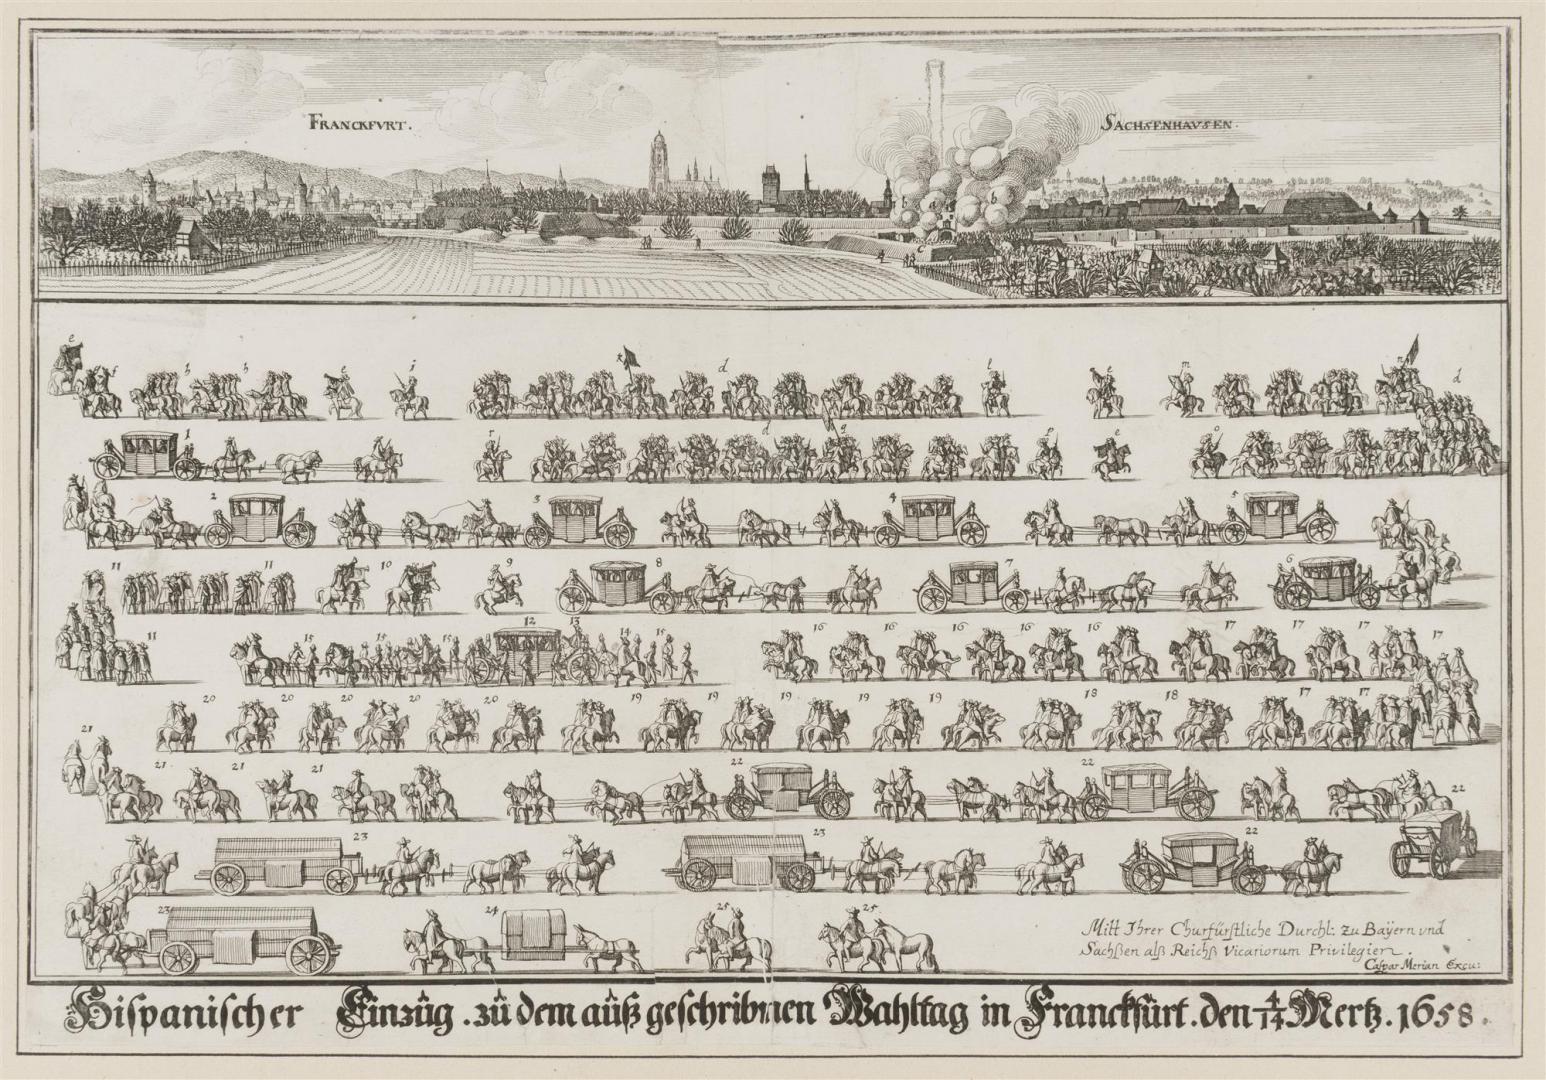 FRANCKFVRT.
SACHSENHAVSEN.
e f h h e i k d l e m n d
1 r d q p e o
2 3 4 5
11 11 10 9 8 7 6
11 15 15 15 12 13 14 15 16 16 16 16 16 17 17 17 17
20 20 20 20 20 19 19 19 19 19 18 18 17 17
21 21 21 21 22 22 22
23 23 22
23 24 25 25
Mitt Ihrer Churfürstliche Durchl: zu Baÿern vnd
Sachßen alß Reichß Vicariorum Privilegien.
Caspar Merian Excu:
Hispanischer Einzŭg . zŭ dem aŭß geschribnen Wahltag in Franckfŭrt . den 4/14 Mertz . 1658 .